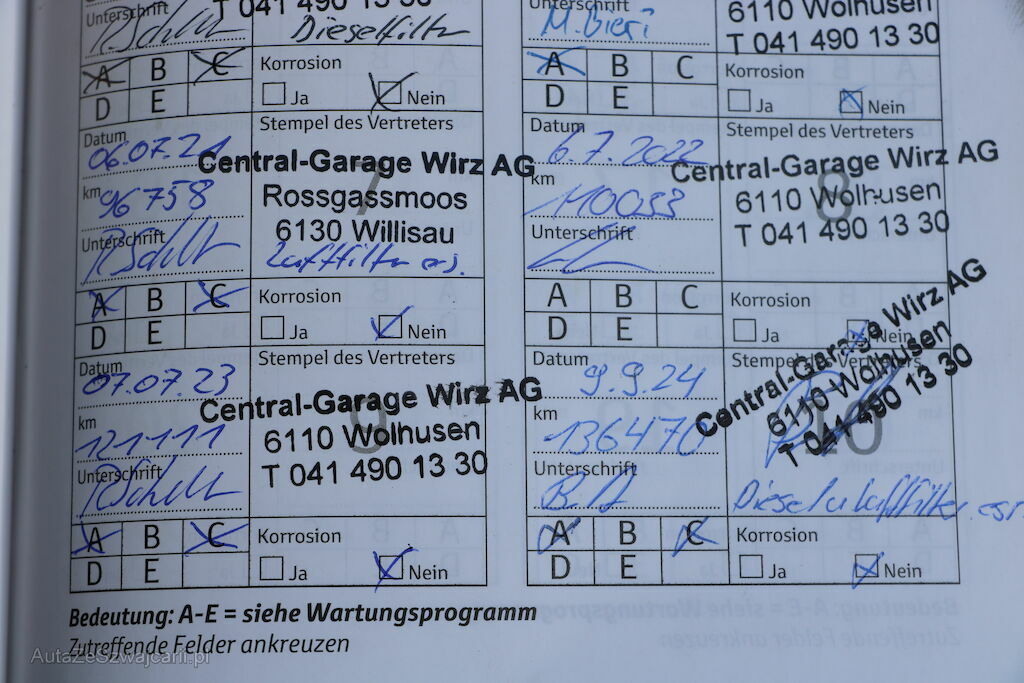 Unterschrift
T 041 490 13 30
R. Schltt
Dieselfilter
A B C
D E
Korrosion
Ja Nein
Unterschrift
M. Bieri
6110 Wolhusen
T 041 490 13 30
A B C
D E
Korrosion
Ja Nein
Datum
06.07.21
km
96758
Unterschrift
Stempel des Vertreters
7
Central-Garage Wirz AG
Rossgassmoos
6130 Willisau
Luftfilter ers.
A B C
D E
Korrosion
Ja Nein
Datum
6.7.2022
km
110033
Unterschrift
Stempel des Vertreters
8
Central-Garage Wirz AG
6110 Wolhusen
T 041 490 13 30
A B C
D E
Korrosion
Ja Nein
Datum
07.07.23
km
121111
Unterschrift
Stempel des Vertreters
9
Central-Garage Wirz AG
6110 Wolhusen
T 041 490 13 30
A B C
D E
Korrosion
Ja Nein
Datum
9.9.24
km
136470
Unterschrift
Stempel des Vertreters
10
Central-Garage Wirz AG
6110 Wolhusen
T 041 490 13 30
A B C
D E
Korrosion
Ja Nein
Bedeutung: A-E = siehe Wartungsprogramm
Zutreffende Felder ankreuzen
AutaZeSzwajcarii.pl